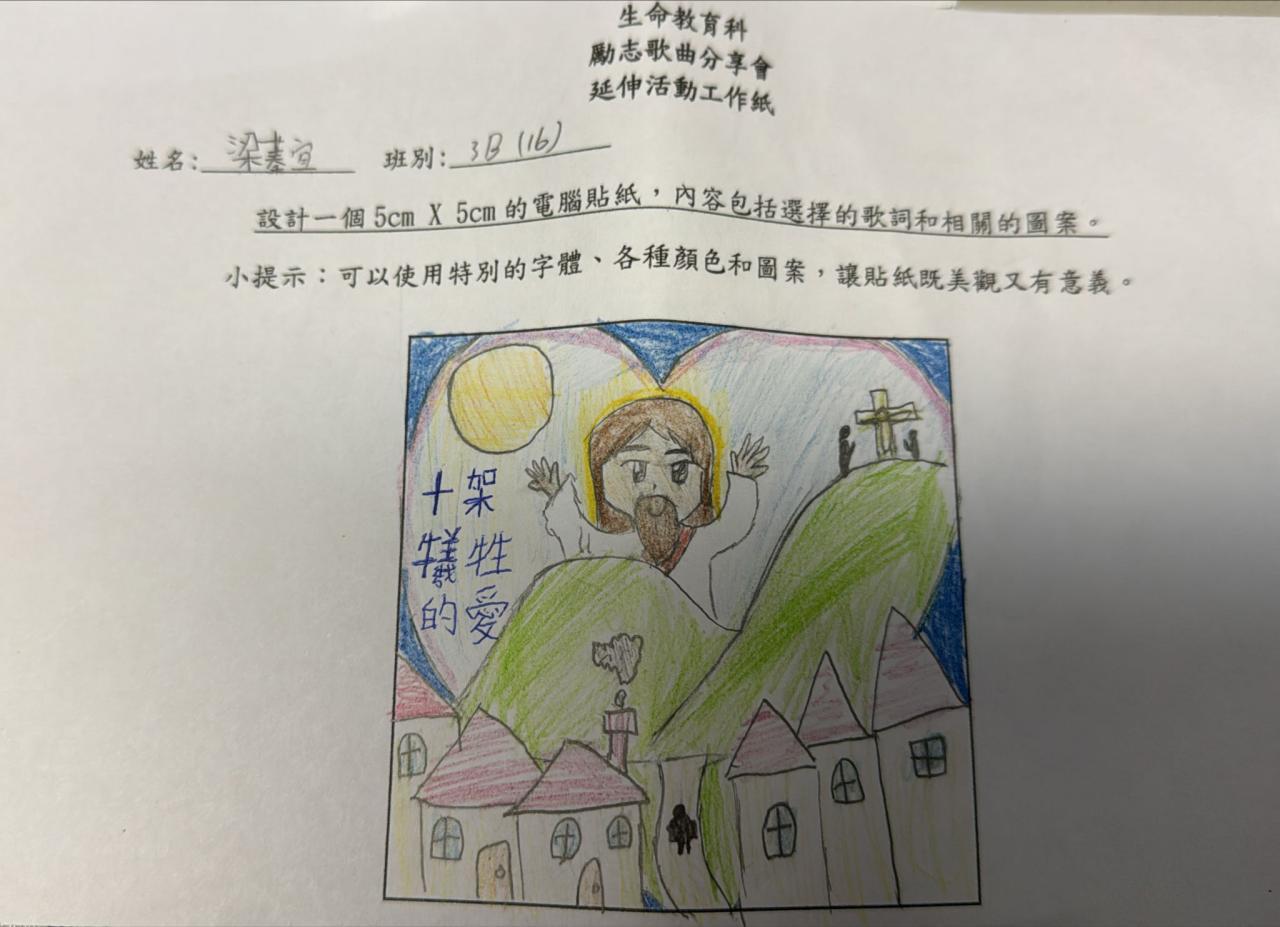 生命教育科
勵志歌曲分享會
延伸活動工作紙
姓名：梁蓁宜 班別：3B (16)
設計一個 5cm X 5cm 的電腦貼紙，內容包括選擇的歌詞和相關的圖案。
小提示：可以使用特別的字體、各種顏色和圖案，讓貼紙既美觀又有意義。
十架
犧牲
的愛